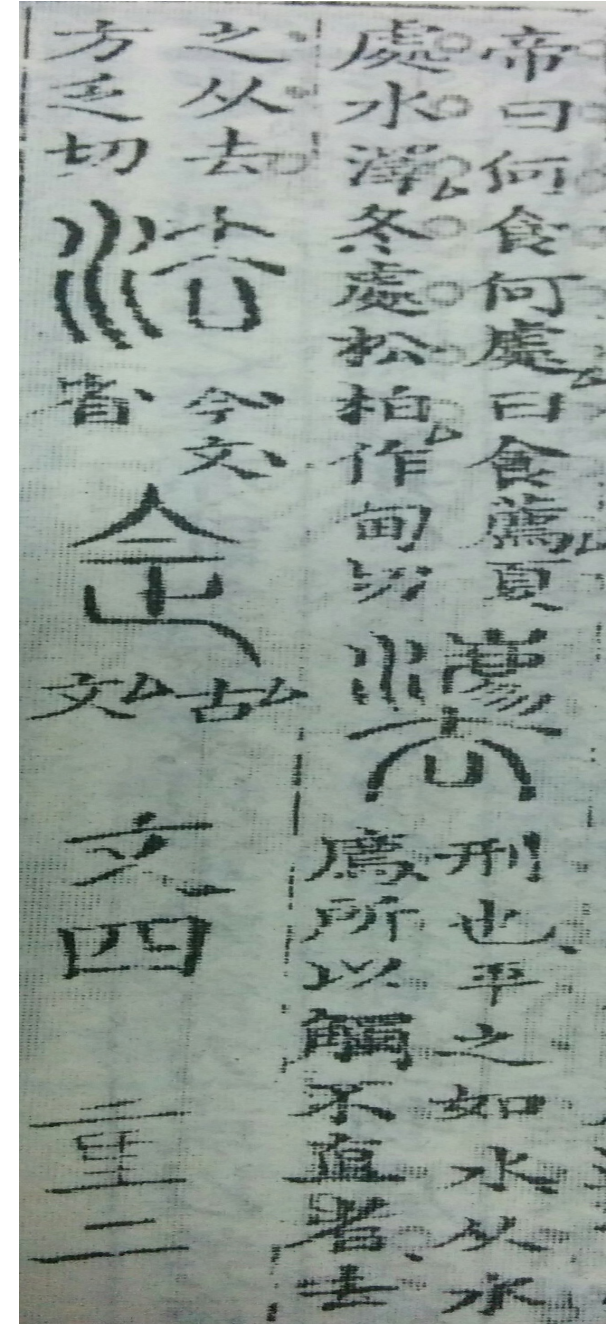 帝曰何食何處曰食薦夏
處水澤冬處松柏作甸切
灋
刑也平之如水从水
廌所以觸不直者去
之从去
方乏切
法
今文
省
佱
古
文
文四 重二